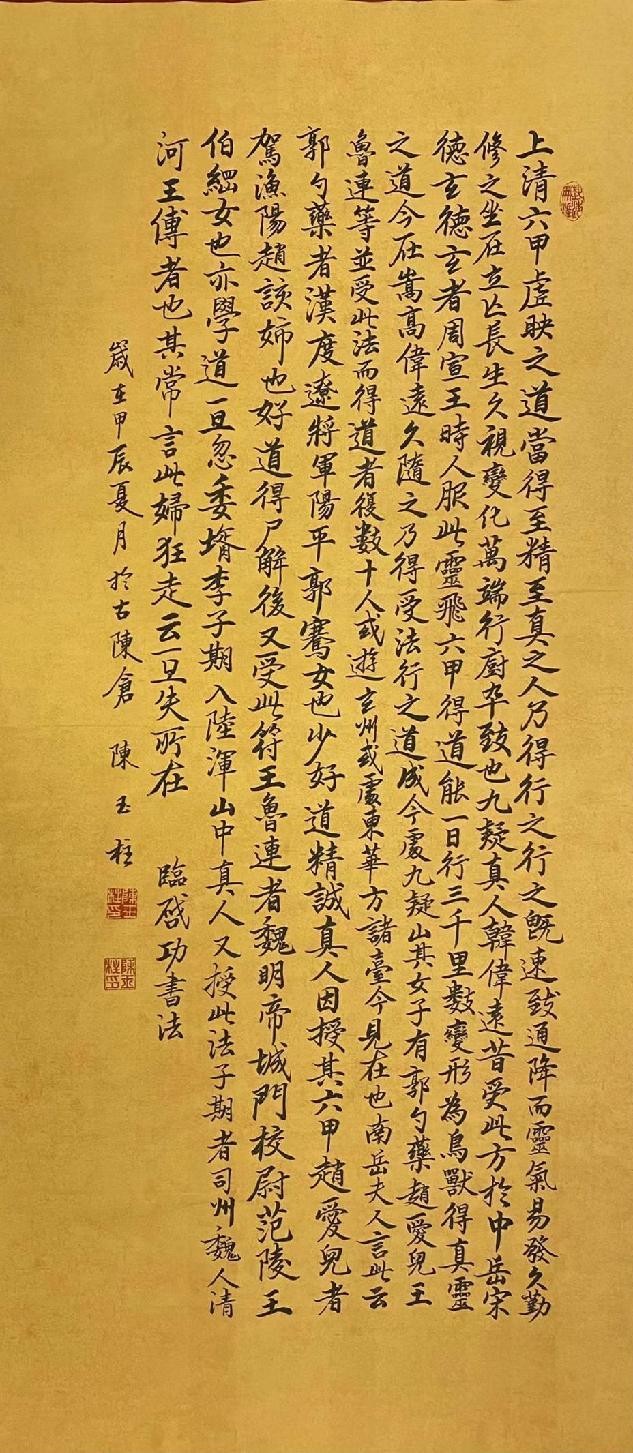 上清六甲虛映之道當得至精至真之人乃得行之行之既速致通降而靈氣易發久勤
修之坐在立亡長生久視變化萬端行廚卒致也九疑真人韓偉遠昔受此方於中岳宋
德玄德玄者周宣王時人服此靈飛六甲得道能一日行三千里數變形為鳥獸得真靈
之道今在嵩高偉遠久隨之乃得受法行之道成今處九疑山其女子有郭勺藥趙愛兒王
魯連等並受此法而得道者復數十人或遊玄州或處東華方諸臺今見在也南岳夫人言此云
郭勺藥者漢度遼將軍陽平郭騫女也少好道精誠真人因授其六甲趙愛兒者
駕漁陽趙該姉也好道得尸解後又受此符王魯連者魏明帝城門校尉范陵王
伯綱女也亦學道一旦忽委壻李子期入陸渾山中真人又授此法子期者司州魏人清
河王傅者也其常言此婦狂走云一旦失所在 臨啟功書法
嵗在甲辰夏月於古陳倉 陳玉柱